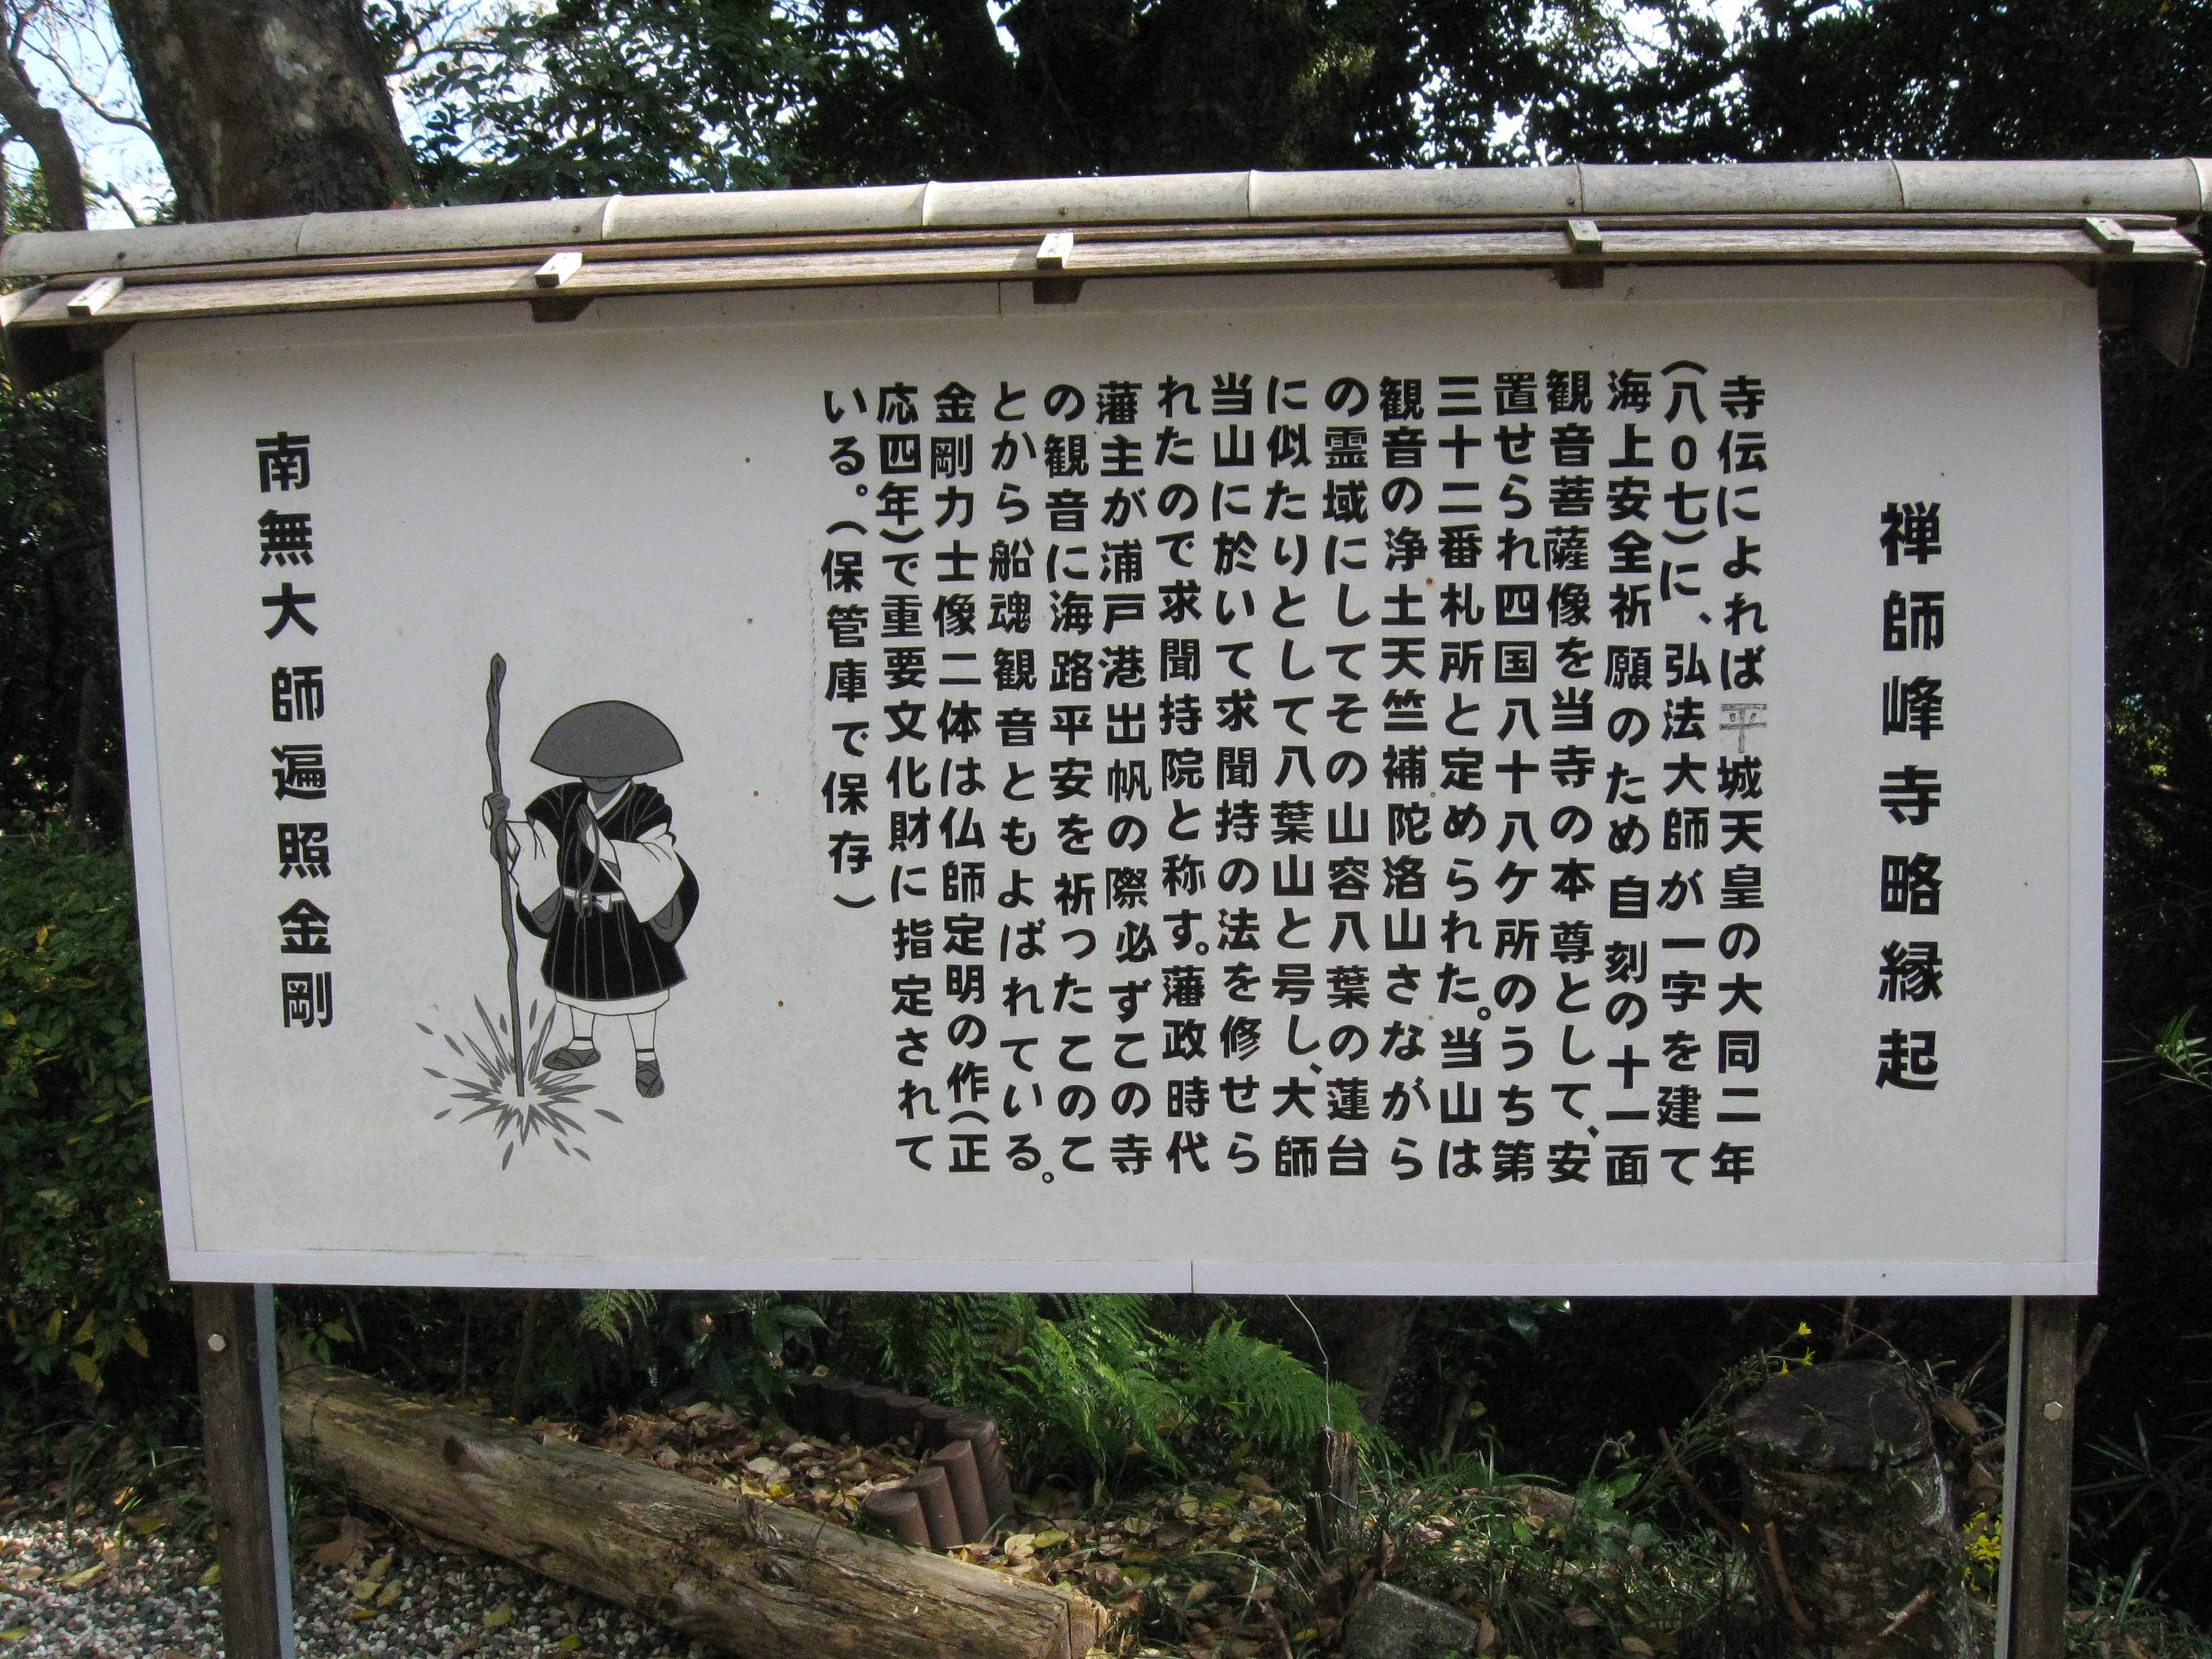 禅師峰寺略縁起
寺伝によれば平城天皇の大同二年
(八0七)に、弘法大師が一字を建て
海上安全祈願のため自刻の十一面
観音菩薩像を当寺の本尊として、安
置せられ四国八十八ケ所のうち第
三十二番札所と定められた。当山は
観音の浄土天竺補陀洛山さながら
の霊域にしてその山容八葉の蓮台
に似たりとして八葉山と号し、大師
当山に於いて求聞持の法を修せら
れたので求聞持院と称す。藩政時代
藩主が浦戸港出帆の際必ずこの寺
の観音に海路平安を祈ったこのこ
とから船魂観音ともよばれている。
金剛力士像二体は仏師定明の作(正
応四年)で重要文化財に指定されて
いる。(保管庫で保存)
南無大師遍照金剛